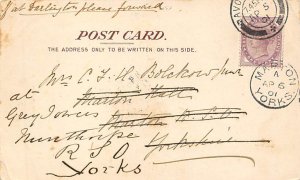 if at Darlington please forward
POST CARD.
THE ADDRESS ONLY TO BE WRITTEN ON THIS SIDE.
Mrs C. F. H. Bolckow
at Marton Hall
Grey Towers Marton R.S.O
Nunthorpe Yorkshire
R.S.O
Yorks
MARTON
A
AP 6
01
YORKS